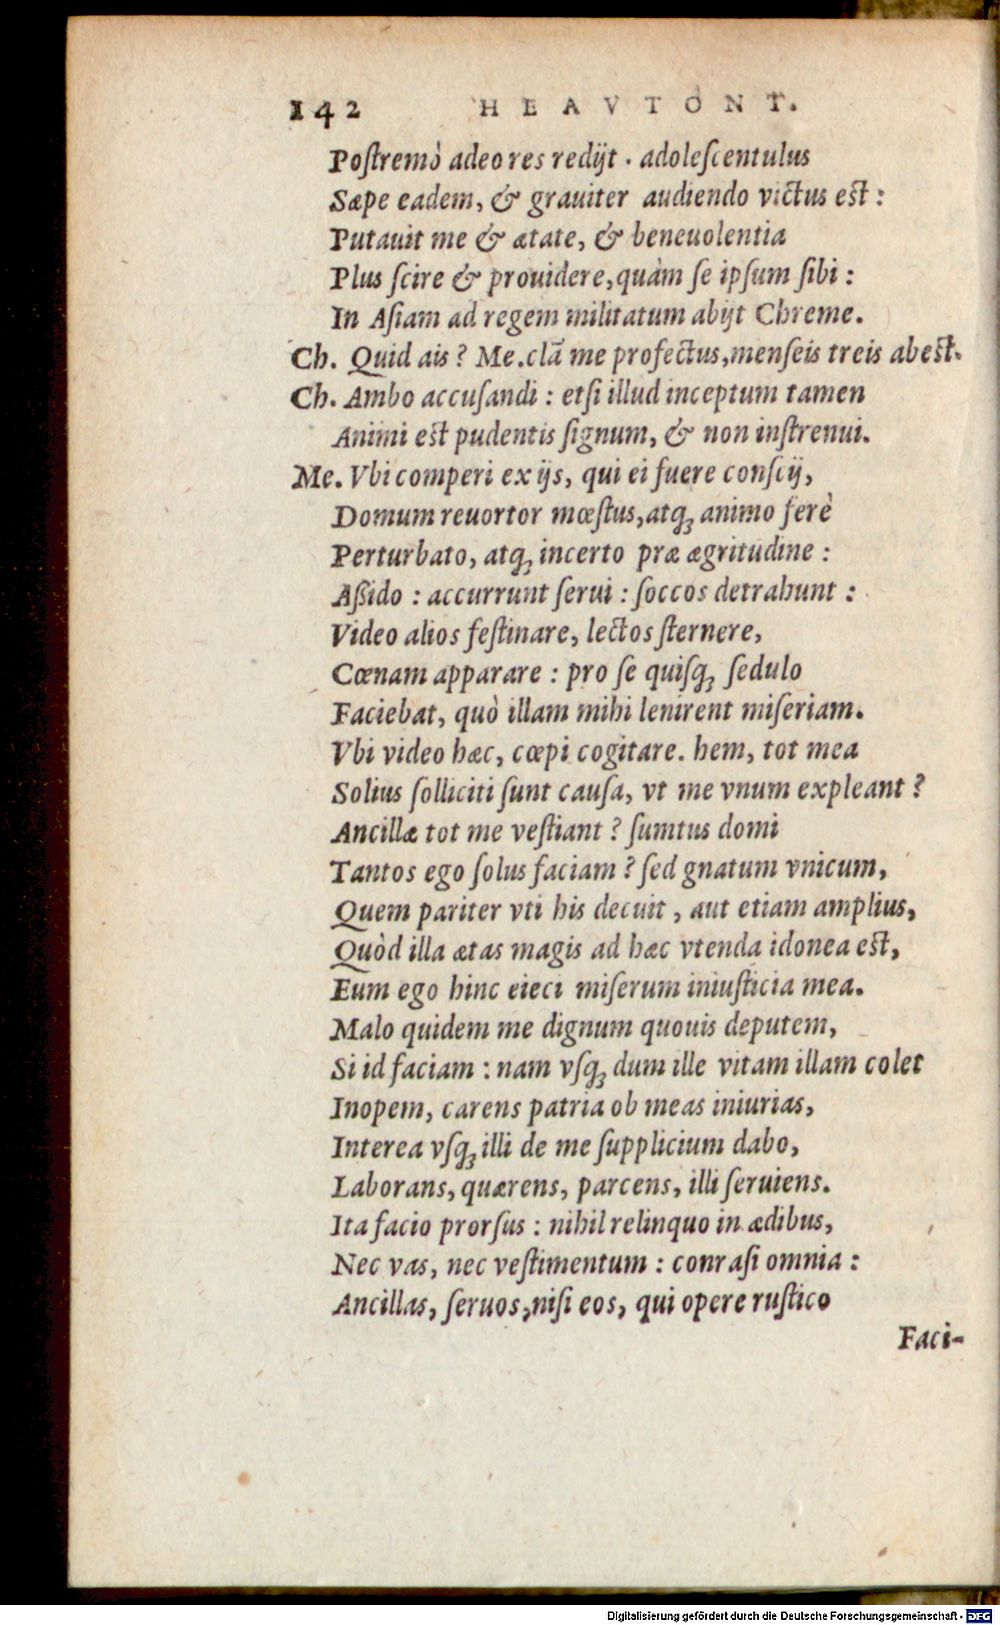 142 HEAVTONT.
Poſtremò adeo res redijt . adoleſcentulus
Sæpe eadem, & grauiter audiendo victus eſt :
Putauit me & ætate, & beneuolentia
Plus ſcire & prouidere, quàm ſe ipſum ſibi :
In Aſiam ad regem militatum abijt Chreme.
Ch. Quid ais ? Me. clã me profectus, menſeis treis abeſt.
Ch. Ambo accuſandi : etſi illud inceptum tamen
Animi eſt pudentis ſignum, & non inſtrenui.
Me. Vbi comperi ex ijs, qui ei fuere conſcij,
Domum reuortor mœſtus, atqꝫ animo ferè
Perturbato, atqꝫ incerto præ ægritudine :
Aßido : accurrunt ſerui : ſoccos detrahunt :
Video alios feſtinare, lectos ſternere,
Cœnam apparare : pro ſe quiſqꝫ ſedulo
Faciebat, quò illam mihi lenirent miſeriam.
Vbi video hæc, cœpi cogitare. hem, tot mea
Solius ſolliciti ſunt cauſa, vt me vnum expleant ?
Ancillæ tot me veſtiant ? ſumtus domi
Tantos ego ſolus faciam ? ſed gnatum vnicum,
Quem pariter vti his decuit , aut etiam amplius,
Quòd illa ætas magis ad hæc vtenda idonea eſt,
Eum ego hinc eieci miſerum iniuſticia mea.
Malo quidem me dignum quouis deputem,
Si id faciam : nam vſqꝫ dum ille vitam illam colet
Inopem, carens patria ob meas iniurias,
Interea vſqꝫ illi de me ſupplicium dabo,
Laborans, quærens, parcens, illi ſeruiens.
Ita facio prorſus : nihil relinquo in ædibus,
Nec vas, nec veſtimentum : conraſi omnia :
Ancillas, ſeruos, niſi eos, qui opere ruſtico
Faci-
Digitalisierung gefördert durch die Deutsche Forschungsgemeinschaft - DFG